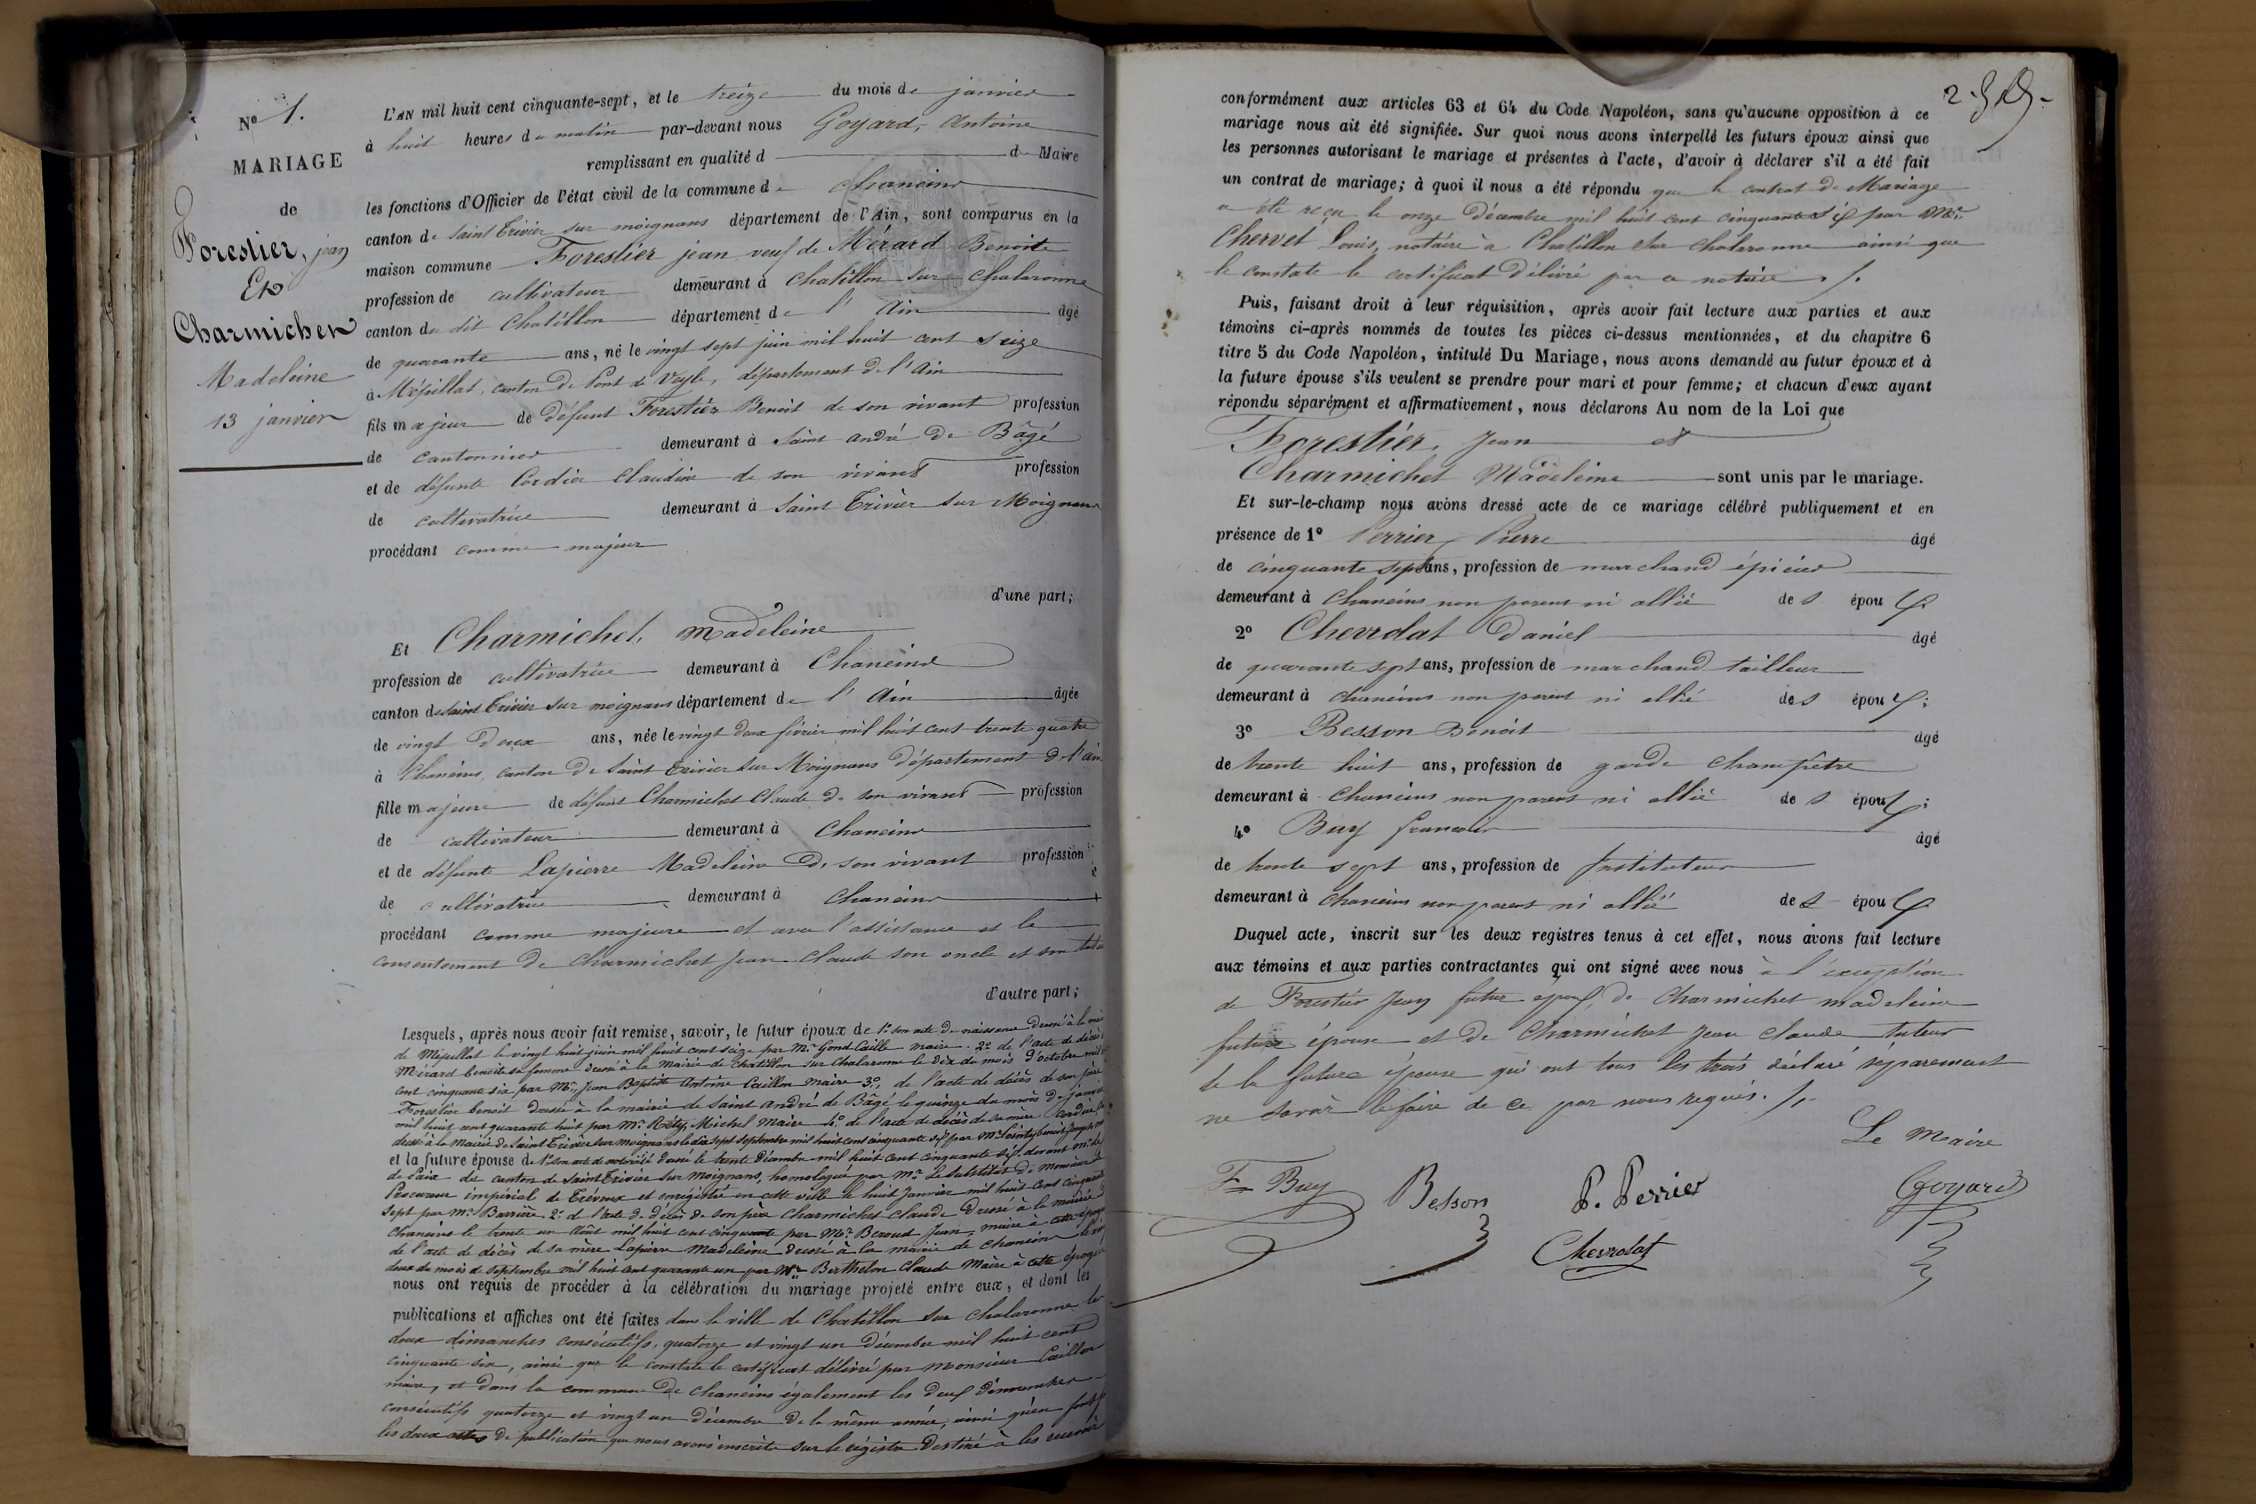 N° 1.
MARIAGE
de
Forestier, jean
Et
Charmichet
Madeleine
13 janvier
L'AN mil huit cent cinquante-sept, et le treize du mois de janvier
à huit heures du matin par-devant nous Goyard, Antoine
remplissant en qualité d de Maire
les fonctions d'Officier de l'état civil de la commune de Chaneins
canton de Saint Trivier sur moignans département de l'Ain, sont comparus en la
maison commune Forestier jean veuf de Mérard Benoite
profession de cultivateur demeurant à Chatillon sur Chalaronne
canton de dit Chatillon département de l'Ain âgé
de quarante ans, né le vingt sept juin mil huit cent seize
à Mépillat, canton de Pont de Veyle, département de l'Ain
fils majeur de défunt Forestier Benoit de son vivant profession
de cantonnier demeurant à Saint andré de Bâgé
et de défunte Cordier Claudine de son vivant profession
de cultivatrice demeurant à Saint Trivier sur Moignans
procédant comme majeur
d'une part;
Et Charmichet, Madeleine
profession de cultivatrice demeurant à Chaneins
canton de Saint Trivier sur moignans département de l'Ain âgée
de vingt deux ans, née le vingt deux février mil huit cent trente quatre
à Chaneins, canton de Saint Trivier sur Moignans département de l'Ain
fille majeure de défunt Charmichet Claude de son vivant profession
de cultivateur demeurant à Chaneins
et de défunte Lapierre Madeleine de son vivant profession
de cultivatrice demeurant à Chaneins
procédant comme majeure et avec l'assistance et le
consentement de Charmichet Jean Claude son oncle et son tuteur
d'autre part;
Lesquels, après nous avoir fait remise, savoir, le futur époux de 1° son acte de naissance dressé à la mairie
de Mépillat le vingt huit juin mil huit cent seize par Mr. Gond Caille maire. 2° de l'acte de décès de
Mérard benoite sa femme dressé à la mairie de Chatillon sur Chalaronne le dix du mois d'octobre mil huit
cent cinquante six par Mr. Jean Baptiste Antoine Caillon maire 3° de l'acte de décès de son père
Forestier benoit dressé à la mairie de Saint André de Bâgé le quinze du mois de janvier
mil huit cent quarante huit par Mr. Michel Maire 4° de l'acte de décès de sa mère Cordier
dressé à la Mairie de Saint Trivier sur moignans le dix sept septembre mil huit cent cinquante six par Mr.
et la future épouse de 1° son acte de notoriété dressé le trente décembre mil huit cent cinquante six devant Mr. le juge
de Paix du canton de Saint Trivier sur Moignans, homologué par Mr. le Substitut de Monsieur le
Procureur impérial de Trévoux et enregistré en cette ville le huit Janvier mil huit cent cinquante
sept par Mr. Barrière 2° de l'acte de décès de son père Charmichet Claude dressé à la mairie de
Chaneins le trente un août mil huit cent cinquante par Mr. Beroud Jean, maire à cette époque
de l'acte de décès de sa mère Lapierre Madeleine dressé à la mairie de Chaneins le vingt
deux du mois de septembre mil huit cent quarante un par Mr. Berthelon Claude Maire à cette époque
nous ont requis de procéder à la célébration du mariage projeté entre eux, et dont les
publications et affiches ont été faites dans la ville de Chatillon sur Chalaronne les
deux dimanches consécutifs, quatorze et vingt un décembre mil huit cent
cinquante six, ainsi que le constate le certificat délivré par Monsieur Caillon
maire, et dans la commune de Chaneins également les deux dimanches
consécutifs quatorze et vingt un décembre de la même année, ainsi qu'en font foi
les deux actes de publication que nous avons inscrits sur le registre destiné à les recevoir
conformément aux articles 63 et 64 du Code Napoléon, sans qu'aucune opposition à ce
mariage nous ait été signifiée. Sur quoi nous avons interpellé les futurs époux ainsi que
les personnes autorisant le mariage et présentes à l'acte, d'avoir à déclarer s'il a été fait
un contrat de mariage; à quoi il nous a été répondu que le contrat de Mariage
a été reçu le onze décembre mil huit cent cinquante six par Mr.
Chervet Louis, notaire à Chatillon sur Chalaronne ainsi que
le constate le certificat délivré par ce notaire ./.
Puis, faisant droit à leur réquisition, après avoir fait lecture aux parties et aux
témoins ci-après nommés de toutes les pièces ci-dessus mentionnées, et du chapitre 6
titre 5 du Code Napoléon, intitulé Du Mariage, nous avons demandé au futur époux et à
la future épouse s'ils veulent se prendre pour mari et pour femme; et chacun d'eux ayant
répondu séparément et affirmativement, nous déclarons Au nom de la Loi que
Forestier, Jean et
Charmichet Madeleine sont unis par le mariage.
Et sur-le-champ nous avons dressé acte de ce mariage célébré publiquement et en
présence de 1° Perrier, Pierre âgé
de cinquante sept ans, profession de marchand épicier
demeurant à Chaneins non parent ni allié des époux.
2° Chevrolat Daniel âgé
de quarante sept ans, profession de marchand tailleur
demeurant à chaneins non parent ni allié des époux;
3° Besson Benoit âgé
de trente huit ans, profession de garde champêtre
demeurant à Chaneins non parent ni allié des époux;
4° Buy françois âgé
de trente sept ans, profession de Instituteur
demeurant à Chaneins non parent ni allié des époux
Duquel acte, inscrit sur les deux registres tenus à cet effet, nous avons fait lecture
aux témoins et aux parties contractantes qui ont signé avec nous à l'exception
de Forestier Jean futur époux, de Charmichet madeleine
future épouse et de Charmichet Jean claude tuteur
de la future épouse qui ont tous les trois déclaré séparément
ne savoir le faire de ce par nous requis. ./.
Le Maire
Fs Buy Besson P. Perrier Goyard
Chevrolat